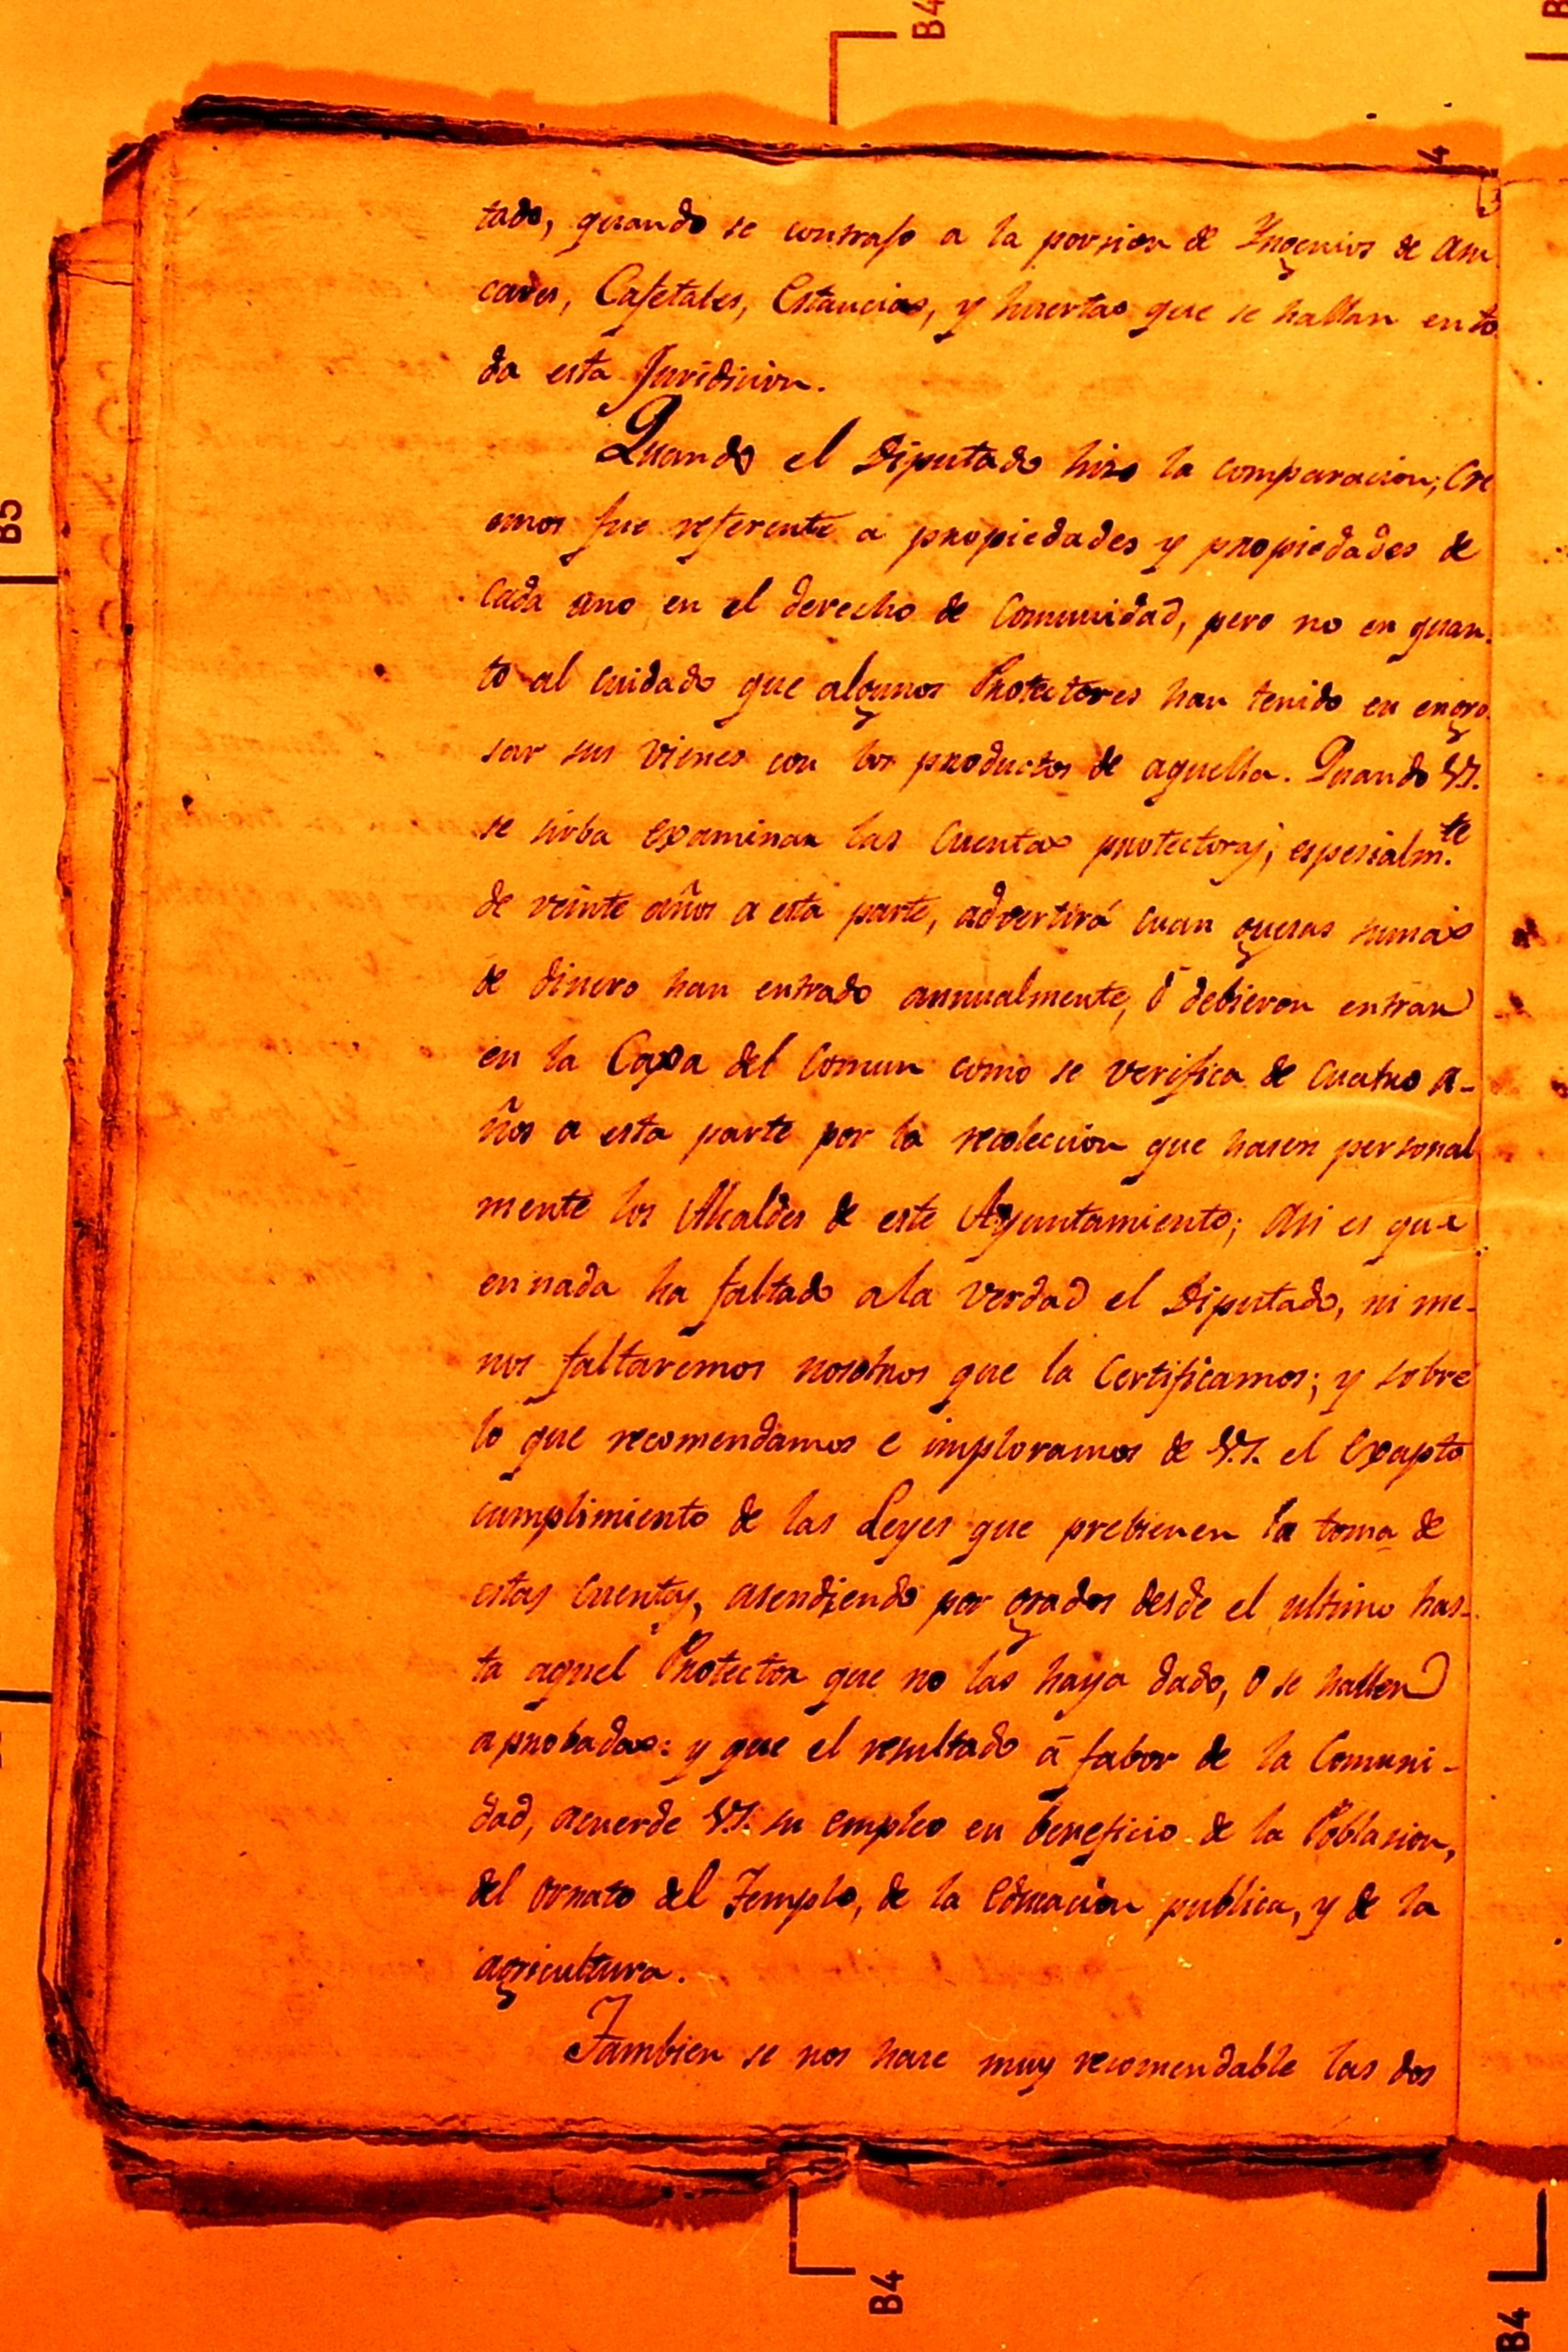 B4
4
3
tado, quando se contrajo a la porsion de Ingenios de asu
cares, Cafetales, Estancias, y huertas que se hallan en to
da esta Juridicion.
Quando el Diputado hizo la comparacion, Cre
emos fue referente a propiedades y propiedades de
cada uno en el derecho de Comunidad, pero no en quan
to al cuidado que algunos Protectores han tenido en engro
sar sus vienes con los productos de aquella. Quando V.S.
se sirba examinar las Cuentas protectoras, espesialm.te
de veinte años a esta parte, advertirá cuan guesas sumas
de dinero han entrado annualmente, ó debieron entrar
en la Caxa del Comun como se verifica de cuatro a-
ños a esta parte por la recoleccion que hasen personal
mente los Alcaldes de este Ayuntamiento; asi es que
en nada ha faltado a la verdad el Diputado, ni me-
nos faltaremos nosotros que la Certificamos; y sobre
lo que recomendamos e imploramos de V.S. el Exapto
cumplimiento de las Leyes que prebienen la toma de
estas Cuentas, asendiendo por grados desde el ultimo has-
ta aquel Protector que no las haya dado, o se hallen
aprobadas: y que el resultado á fabor de la Comuni-
dad, acuerde V.S. su empleo en beneficio de la Poblasion,
del ornato del Templo, de la Educacion publica, y de la
agricultura.
Tambien se nos hase muy recomendable las dos
B5
B4
B4